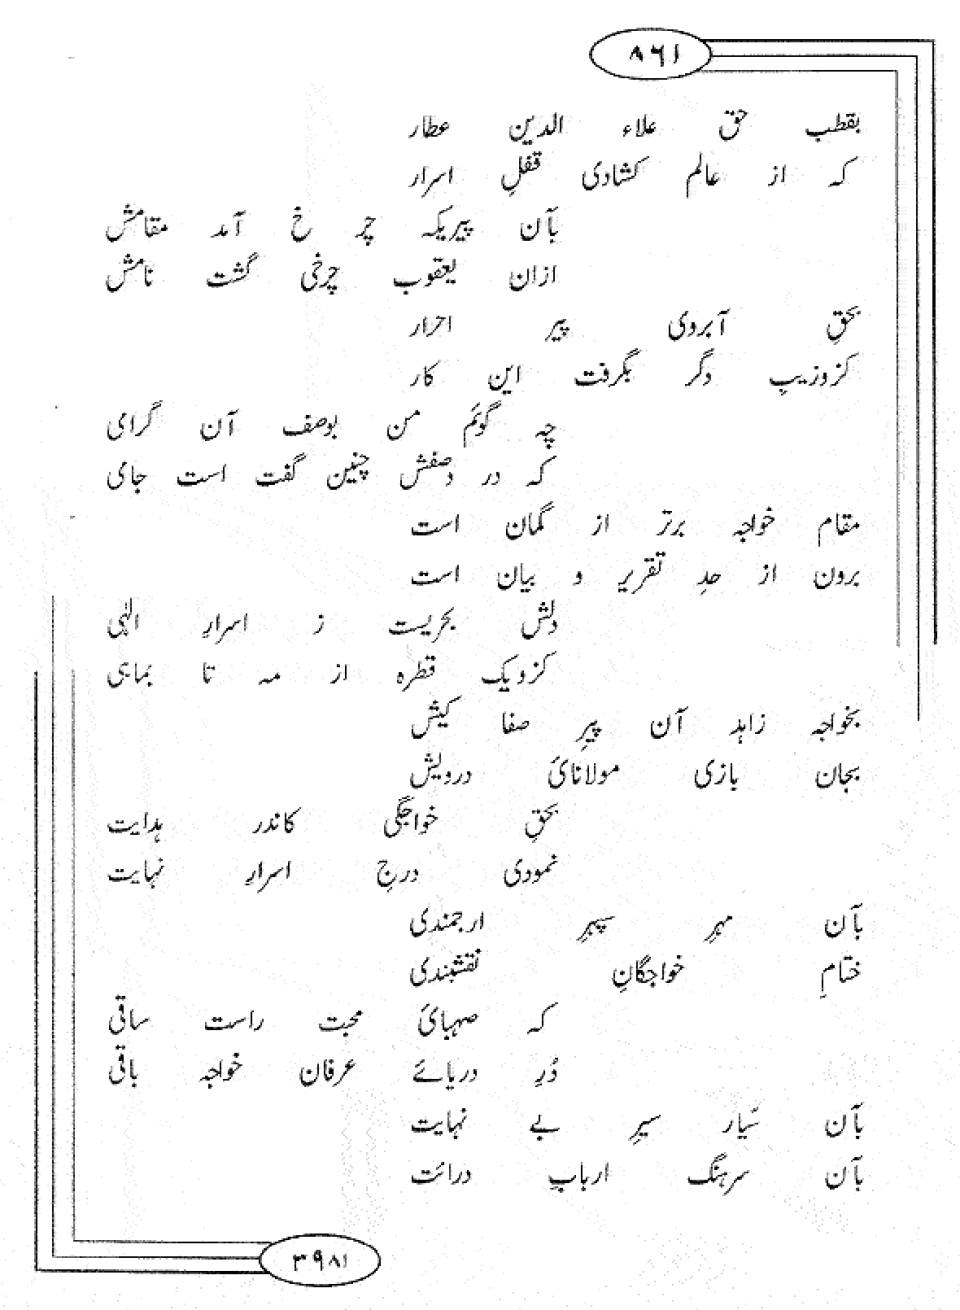 ۸۶۱
بقطب حق علاء الدین عطار
کہ از عالم کشادی قفلِ اسرار
بآن پیریکہ چر خ آمد مقامش
ازان یعقوب چرخی گشت نامش
بحقِ آبروی پیر احرار
کزوزیبِ دگر بگرفت این کار
چہ گوئم من بوصف آن گرامی
کہ در وصفش چنین گفت است جامی
مقام خواجہ برتر از گمان است
برون از حدِ تقریر و بیان است
دلش بحریست ز اسرارِ الٰہی
کزویک قطرہ از مہ تا بماہی
بخواجہ زاہد آن پیرِ صفا کیش
بجان بازی مولانائ درویش
بحقِ خواجگی کاندر ہدایت
نمودی درجِ اسرارِ نہایت
بآن مہرِ سپہرِ ارجمندی
ختامِ خواجگانِ نقشبندی
کہ صہبائ محبت راست ساقی
دُرِ دریائے عرفان خواجہ باقی
بآن سیّار سیرِ بے نہایت
بآن سرہنگ اربابِ درائت
۳۹۸۱